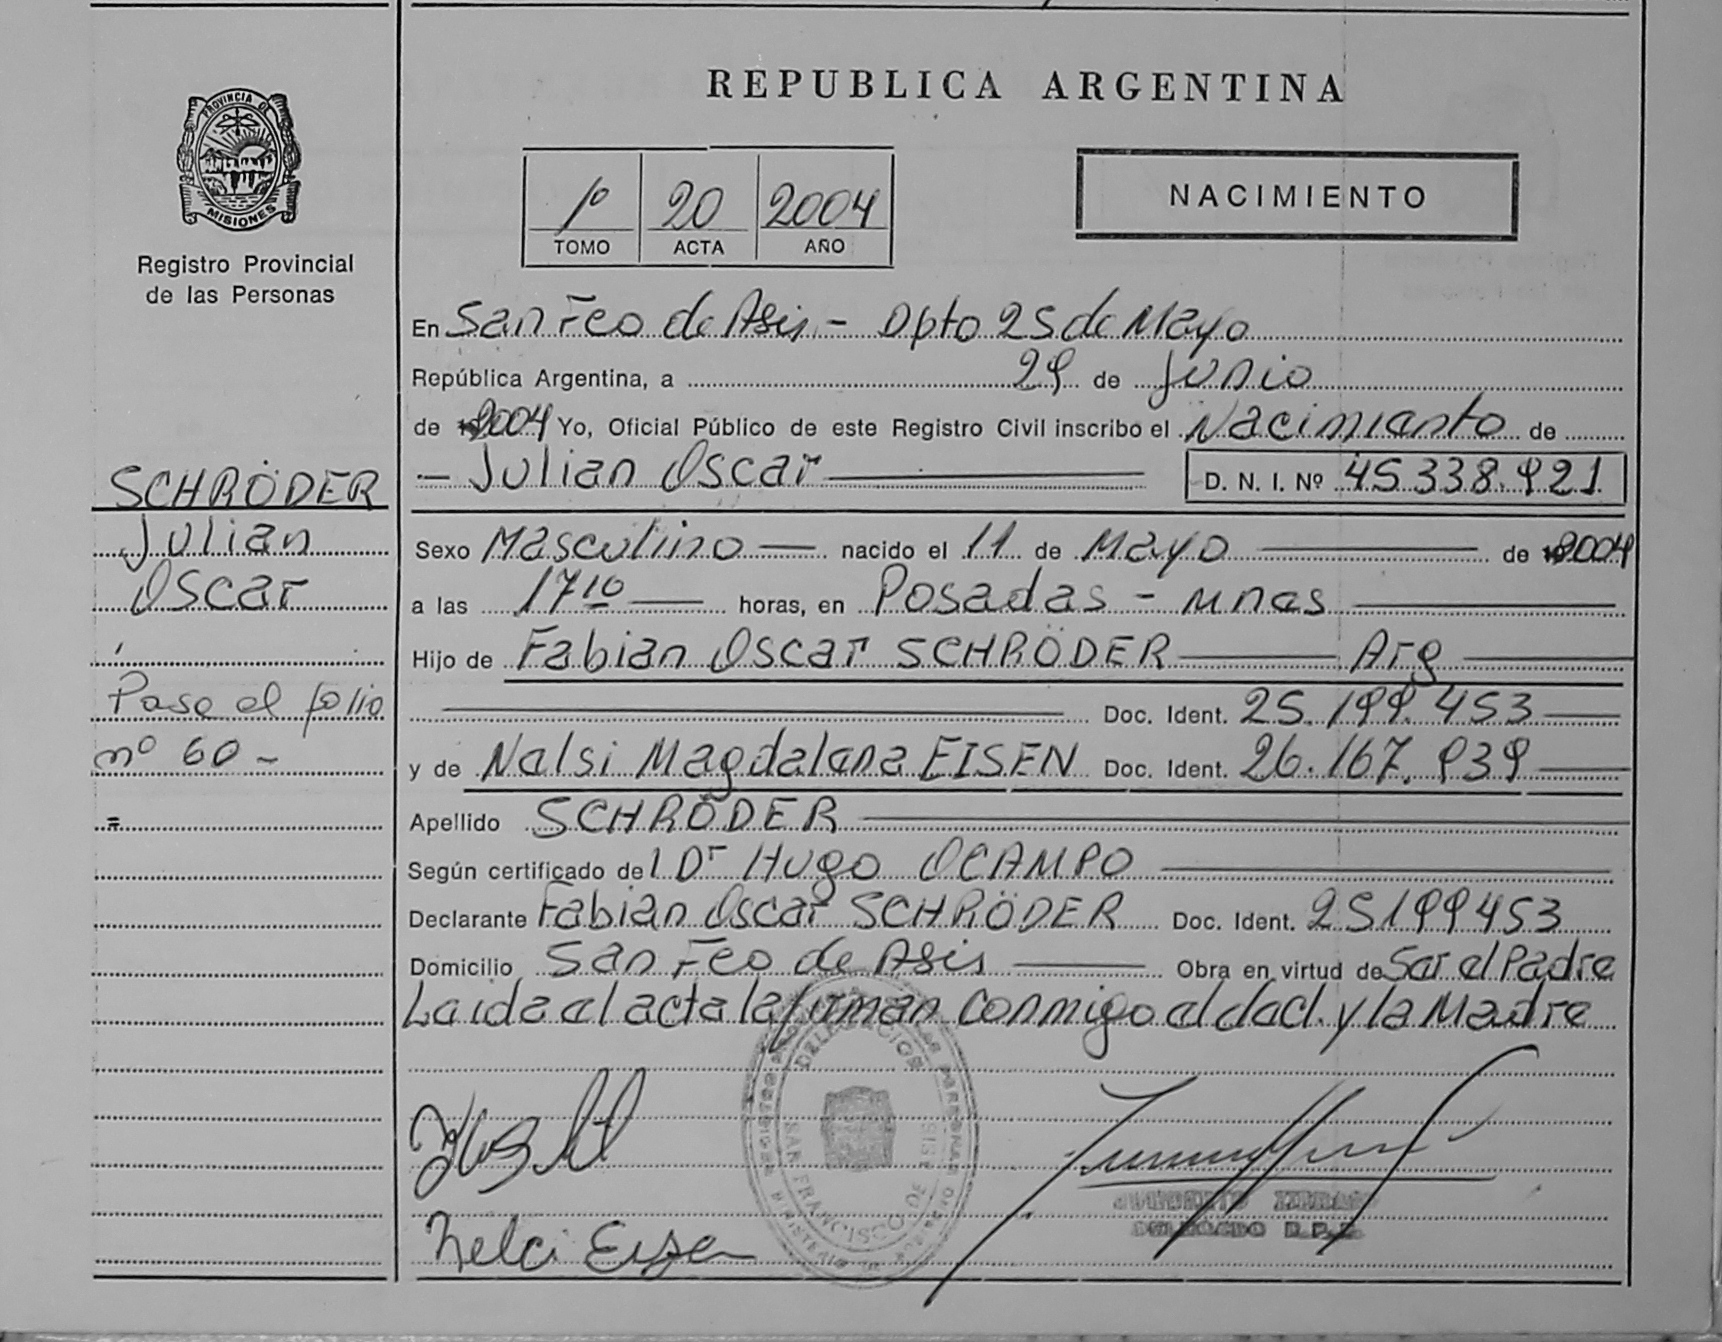 PROVINCIA DE
MISIONES
Registro Provincial
de las Personas
SCHRÖDER
Julian
Oscar
Pase al folio
nº 60 -
REPUBLICA ARGENTINA
1º 20 2004
TOMO ACTA AÑO
NACIMIENTO
En San Fco de Asis - Dpto 25 de Mayo
República Argentina, a 29 de Junio
de 2004 Yo, Oficial Público de este Registro Civil inscribo el Nacimiento de
- Julian Oscar D. N. I. Nº 45.338.921
Sexo Masculino nacido el 11 de Mayo de 2004
a las 17 10 horas, en Posadas - Mnes
Hijo de Fabian Oscar SCHRÖDER Arg
Doc. Ident. 25.199.453
y de Nelsi Magdalena EISEN Doc. Ident. 26.167.939
Apellido SCHRÖDER
Según certificado del Dr Hugo OCAMPO
Declarante Fabian Oscar SCHRÖDER Doc. Ident. 25199453
Domicilio San Fco de Asis Obra en virtud de Ser el Padre
Leida el acta la firman conmigo el decl. y la Madre
SAN FRANCISCO DE ASIS
Nelci Eisen